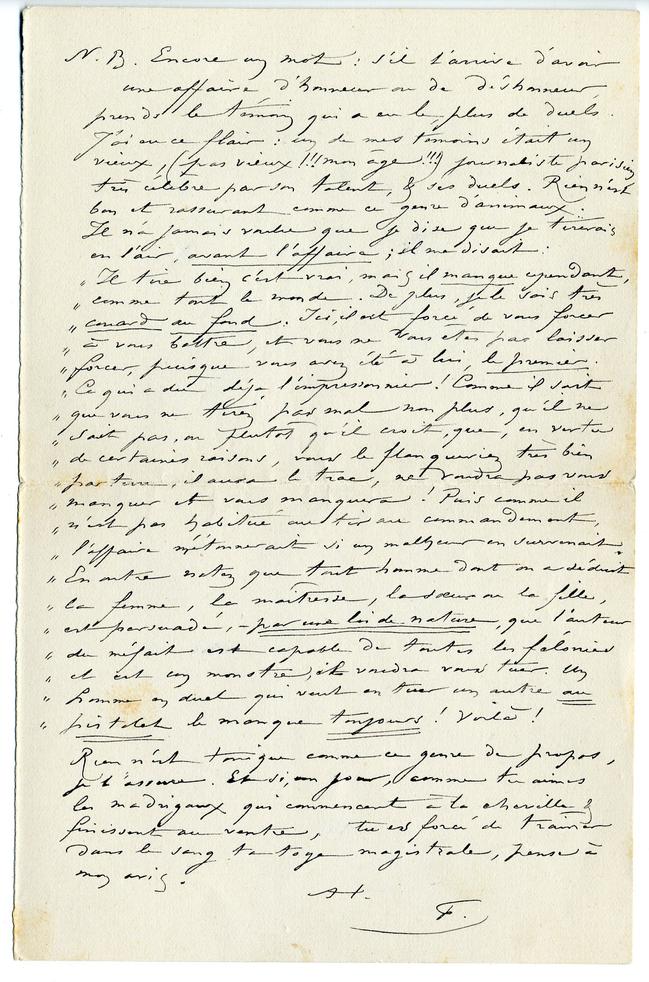 N. B. Encore un mot : s'il t'arrive d'avoir
une affaire d'honneur ou de déshonneur,
prends le témoin qui a eu le plus de duels.
J'ai eu ce flair : un de mes témoins était un
vieux, (pas vieux !!! mon âge !!!) journaliste parisien
très célèbre par son talent, & ses duels. Rien n'est
bon et rassurant comme ce genre d'animaux..
Il n'a jamais voulu que je dise que je tirerais
en l'air, avant l'affaire ; il me disait :
" Il tire bien c'est vrai, mais il manque cependant,
" comme tout le monde. De plus, je le sais très
" couard au fond. Ici, il est forcé de vous forcer
" à vous battre, et vous ne vous êtes pas laisser
" forcer, puisque vous avez été à lui, le premier.
" Ce qui a dû déjà l'impressionner ! Comme il sait
" que vous ne tirez pas mal non plus, qu'il ne
" sait pas, ou plutôt qu'il croit, que, en vertu
" de certaines raisons, vous le flanqueriez très bien
" par terre, il aura le trac, ne voudra pas vous
" manquer et vous manquera ! Puis comme il
" n'est pas habitué au tir au commandement,
" l'affaire m'étonnerait si un malheur en survenait.
" En outre notez que tout homme dont on a séduit
" la femme, la maîtresse, la sœur ou la fille,
" est persuadé, – par une loi de nature, que l'auteur
" du méfait est capable de toutes les félonies
" et est un monstre ; il voudra vous tuer. Un
" homme en duel qui veut en tuer un autre au
" pistolet le manque toujours ! Voilà !
Rien n'est tonique comme ce genre de propos,
je t'assure. Et si, un jour, comme tu aimes
les madrigaux qui commencent à la cheville &
finissent au ventre, tu es forcé de traîner
dans le sang ta toge magistrale, pense à
mon avis.
F.